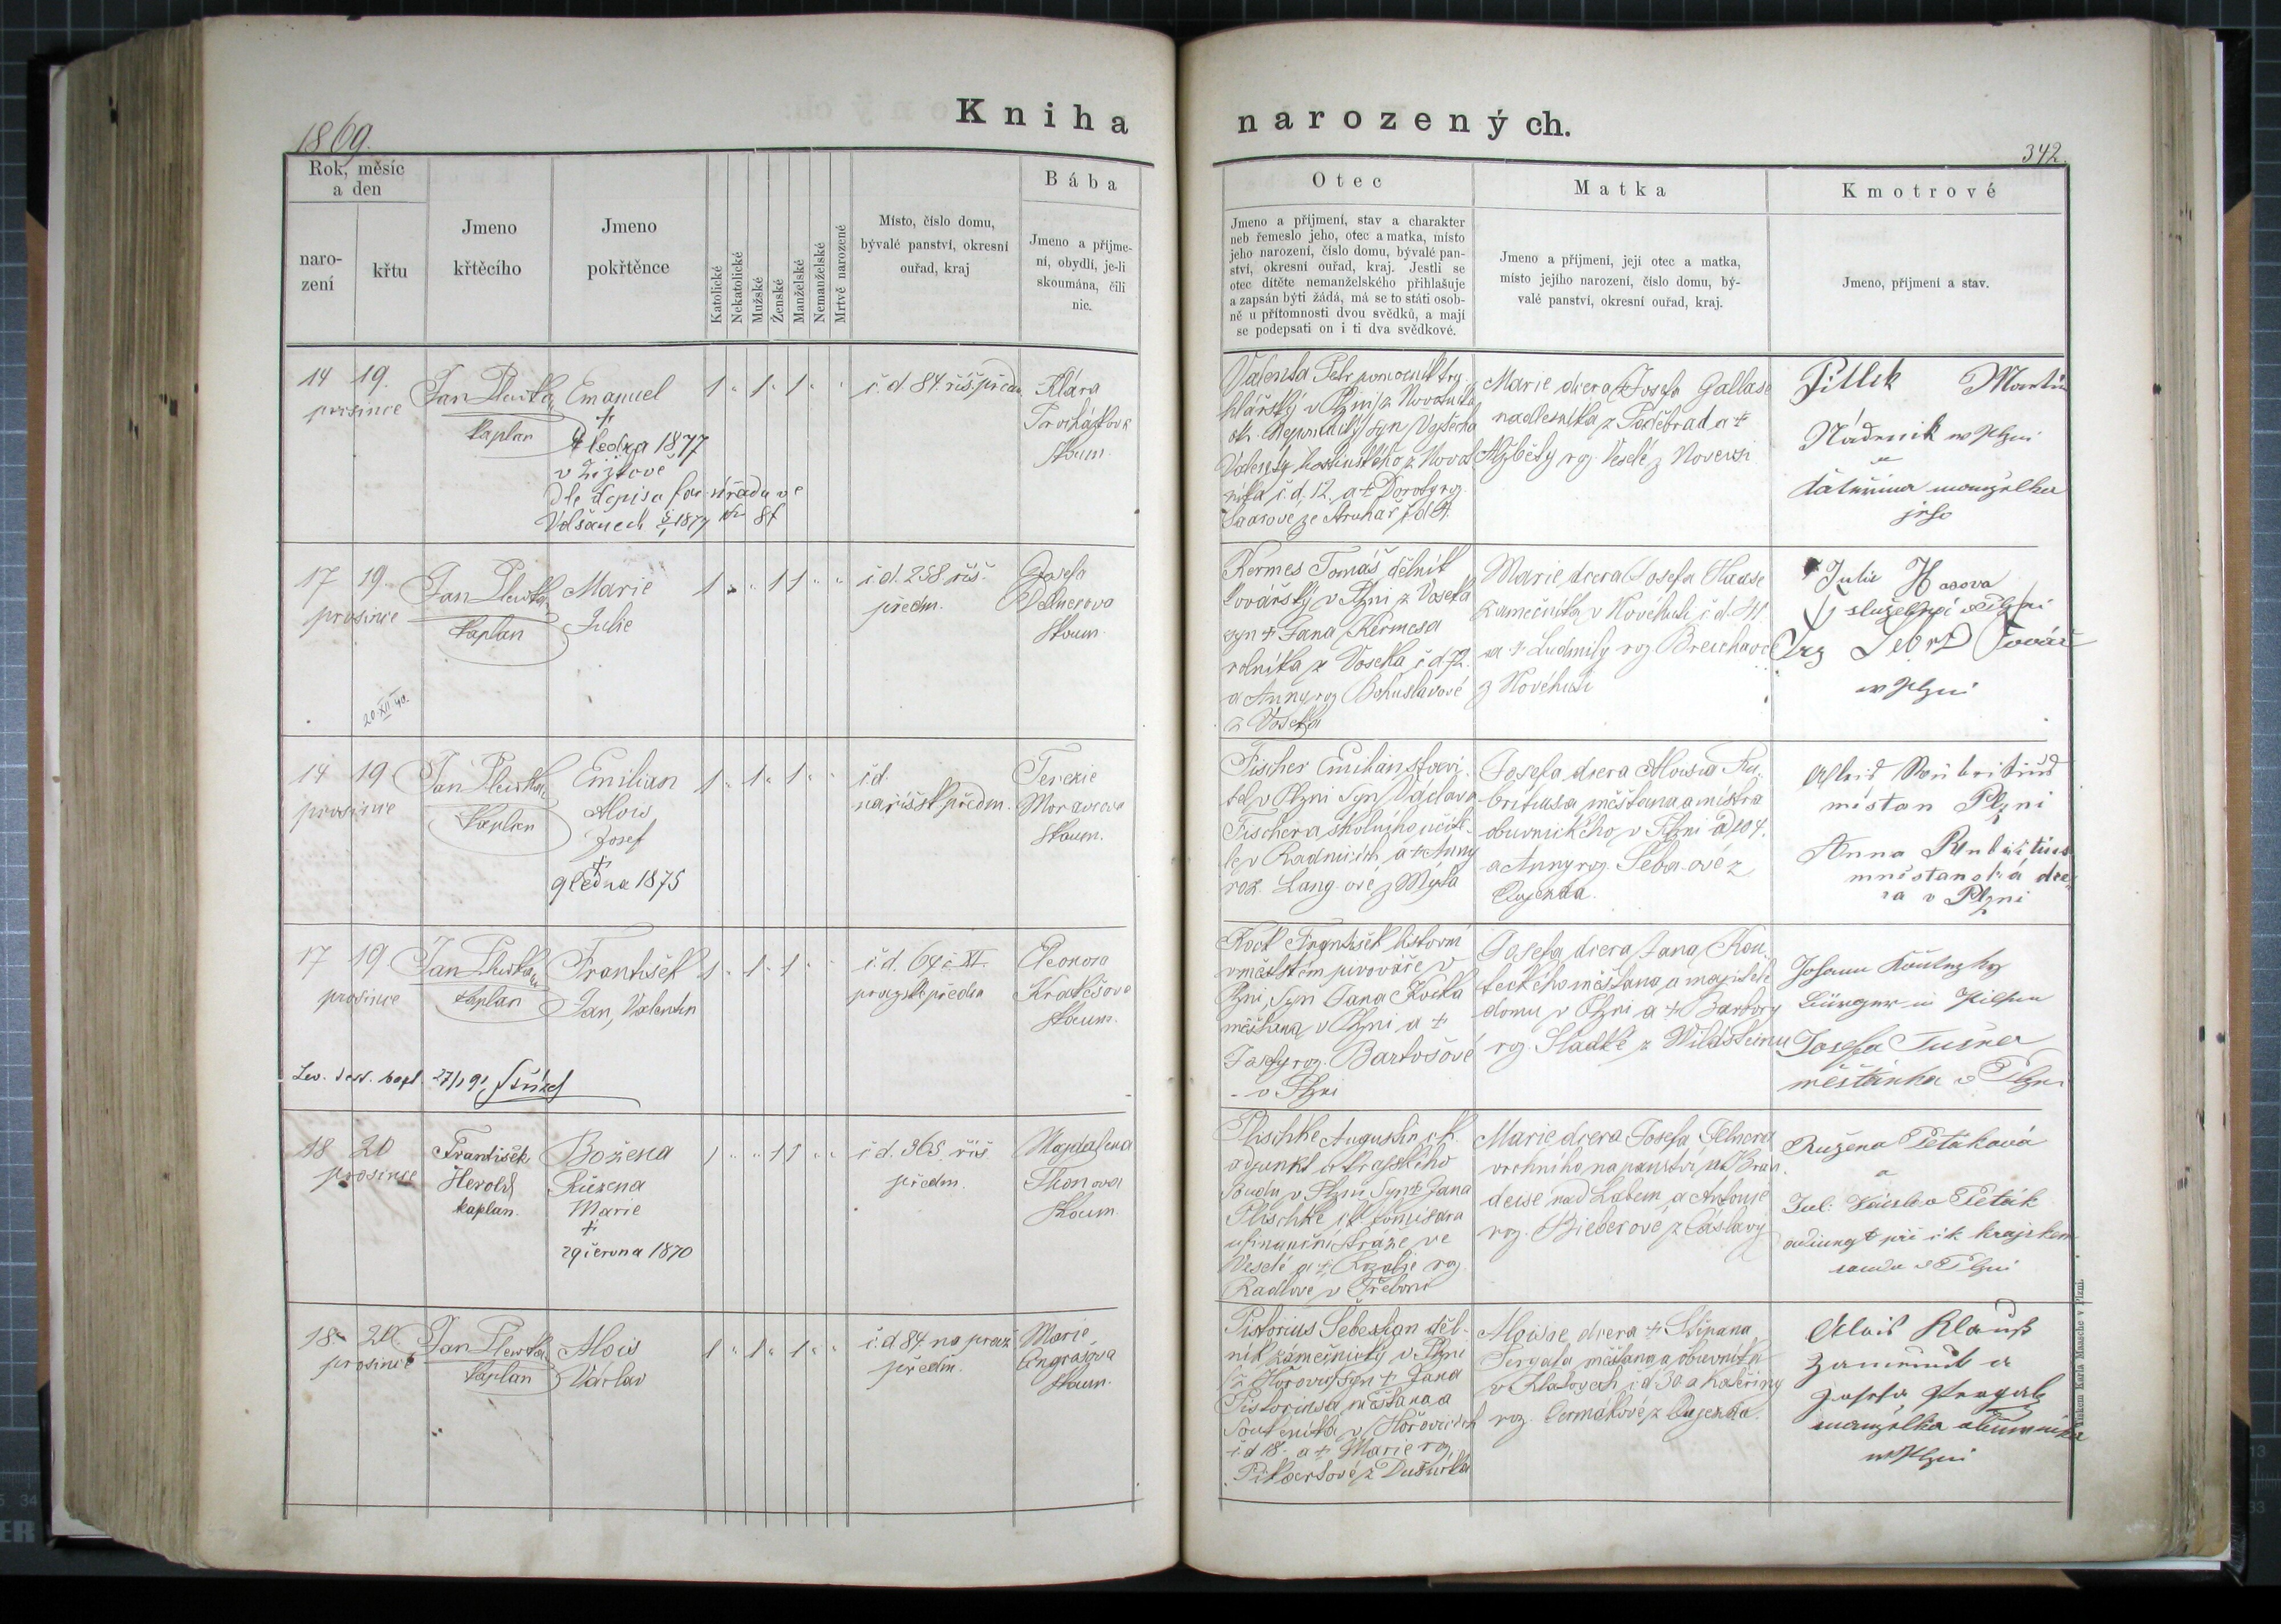 Kniha narozených.
1869.
342.
Rok, měsíc
a den
naro-
zení
křtu
Jmeno
křtěcího
Jmeno
pokřtěnce
Katolické
Nekatolické
Mužské
Ženské
Manželské
Nemanželské
Mrtvě narozené
Místo, číslo domu,
bývalé panství, okresní
ouřad, kraj
Bába
Jmeno a příjme-
ní, obydlí, je-li
skoumána, čili
nic.
Otec
Jmeno a příjmení, stav a charakter
neb řemeslo jeho, otec a matka, místo
jeho narození, číslo domu, bývalé pan-
ství, okresní ouřad, kraj. Jestli se
otec dítěte nemanželského přihlašuje
a zapsán býti žádá, má se to státi osob-
ně u přítomnosti dvou svědků, a mají
se podepsati on i ti dva svědkové.
Matka
Jmeno a příjmení, její otec a matka,
místo jejího narození, číslo domu, bý-
valé panství, okresní ouřad, kraj.
Kmotrové
Jmeno, příjmení a stav.
14 19.
prosince
Jan
kaplan
Emanuel
+
4 ledna 1877
v Žižkově
dle dopisu far. úřadu ve
Volšanech 1877 84
1 1 1
č. d. 84. říš. předm.
Klára
Procházkova
skoum.
Valenta Petr pomocník
v Plzni z
syn
Valenty hostinského z
č. d. 12. a + Doroty roz.
Marie dcera + Josefa Gallase
nadlesníka z Poděbrad a +
Alžběty roz. Veselé z Novewsi
Pitlik Martin
Nádeník w Plzni
a
manželka
jeho
17 19.
prosince
20.XII.40.
Jan
kaplan
Marie
Julie
1 1 1
č. d. 258 říš.
předm.
Josefa
skoum.
Kermes Tomáš dělník
kovářský v Plzni z Voseka
syn + Jana Kermesa
rolníka z Voseka č d 72.
a Anny roz Bohuslavové
z Voseka
Marie dcera Josefa Haase
zámečníka v Novéhuti č. d.
a + Ludmily roz
z Novéhuti
Julie Hasova
služebná v Plzni
kovář
w Plzni
14 19
prosince
Jan
kaplan
Emilian
Alois
Josef
+
9 ledna 1875
1 1 1
č d.
na říšsk předm.
Terezie
Moravcova
skoum.
Fischer Emilian stavi-
tel v Plzni syn Václava
Fischera školního učite-
le v Radnicích a + Anny
roz. Lang-ové z Mýta
Josefa dcera Aloisia Ru-
britiusa měšťana a mistra
obuvnického v Plzni č d 104.
a Anny roz. Šeba-ové z
Oujezda.
místan Plzni
Anna Rubritius
mněstanská dce-
ra v Plzni
17 19
prosince
Jan
kaplan
František
Jan, Valentin
1 1 1
č. d. 69
pražsk předm
Eleonora
skoum.
27/1 91
Kock František
v městském pivováře v
Plzni, syn Jana Kocka
měšťana v Plzni a +
Josefy roz. Bartošové
- v Plzni
Josefa dcera Jana Kou-
teckého měšťana a majitele
domu v Plzni a + Barbory
roz. Sladké z Wildšteinu
Johann
Bürger in Pilsen
Josefa Tušner
měšťanka v Plzni
18 20
prosince
František
Herold
kaplan.
Božena
Růžena
Marie
+
29 června 1870
1 1 1
č d. 365 říš
předm.
Magdalena
Thonova
skoum.
Plischke Augustin c. k.
adjunkt u krajského
soudu v Plzni syn + Jana
Plischke c k komisara
u finanční stráže ve
Veselé a + Rozalie roz.
Radlové v Třeboni
Marie dcera Josefa
vrchního na panství v Bran-
deise nad Labem a Antonie
roz. Bieberové z Čáslavy
Ružena Petáková
a
Jul: Peták
adiungt při c k krajském
soudu v Plzni
18 20.
prosince
Jan
kaplan
Alois
Václav
1 1 1
č. d 84. na praž
předm.
Marie
skoum.
Pistorius Šebestian děl-
ník zámečnický v Plzni
syn + Jana
Pistoriusa měšťana a
soukeníka v Hořovicích
č d 18. a + Marie roz.
Aloisie dcera + Štěpana
měšťana a obuvníka
v Klatovech č d 30 a Kateřiny
roz. Čermákové z Oujezda.
Alois Klauß
a
Josefa
manželka obuwníka
w Plzni
Tiskem Karla Maasche v Plzni.